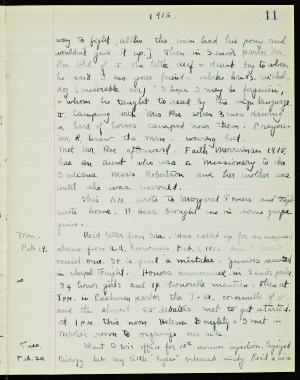 1912.
11
way to fight, altho the man had his pony and
wouldn't give it up.) Then in Senior parlor Mr.
Roe told of J. the little deaf & dumb boy to whom
he said "I am your friend.
dog (miserable cur) "I hope I may be forgiven,"
& whom he taught to read by the sign language.
Camping with Mrs Roe when 3 men driving
a herd of horses camped near them. Prayers.
Mr. R. knew the man - waving hand.
Met Mr. Roe afterward. Faith Merriman 1915,
has an aunt who was a missionary to the
Indians Miss Robertson and her mother was
until she was married.
This P.M. wrote to Margaret Towers and
wrote home. H. Hess brought me in some grape
juice.
Mon.
Feb. 19.
Rec'd letter from Ida. Was called up for an unexcused
absence from a.a. Economics Feb. 7, 1912 and I haven't
missed one. It is just a mistake. Juniors assisted
in chapel tonight. Honors announced in Senior parlor
34 honor girls and 14 honorable mention. Then at
8 P.M. in Freshman parlor the J + Ia. committee of 10
and the almost 95 debaters met to get started.
at 1 P.M. this noon Helena Doughty & I met in
Marble's room to organize our side.
Tues.
Feb. 20.
Went Dr.'s office for 10th serum injection. Enjoyed
Biology Lab. my little "hyla" seemed nicely. Rec'd a